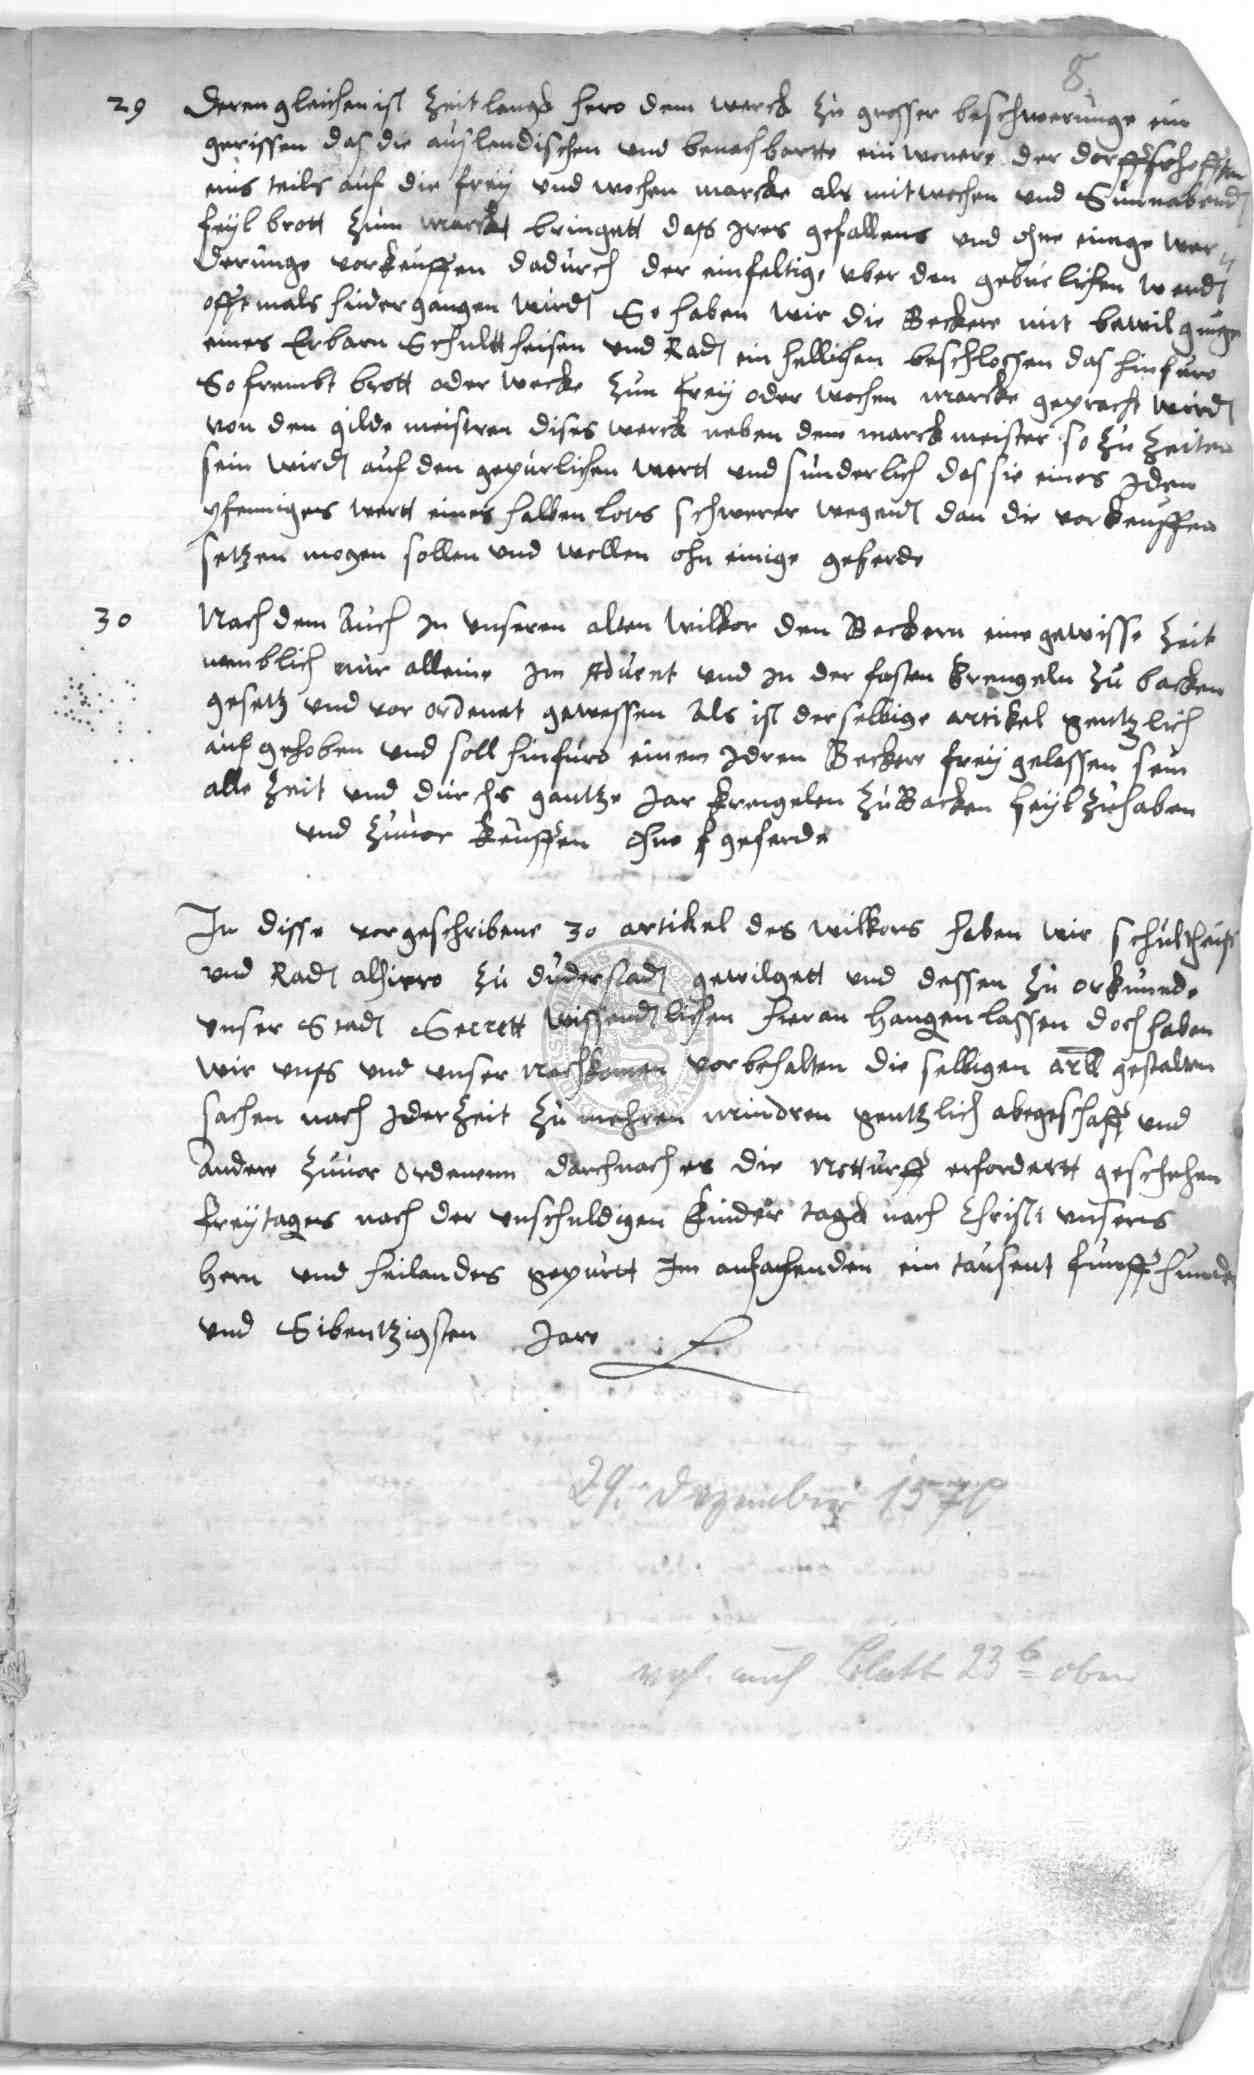 8
29 Deren gleichen ist Zeit langk hero dem werck zu grosser beschwerunge ein
gerissen das die auslendischen und benachbartte einwonere der dorffschofften
eins teils auf die frey und wochen marcke als mitwochen und Sunnabend
feyl brott zum marckt bringett dass ires gefallens und ohne einige wer
derunge vorkeuffen dadurch der einfeltige uber den geburlichen werd
offtmals hindergangen wird So haben wir die Beckere mit bewilgunge
eines Erbarn Schulttheisen und Rad einhellichen beschlossen das hinfuro
So frembt brott oder wecke zum frey oder wochen marcke gepracht wird
von den gilde meistren dises werck neben dem marckmeister so zu Zeiten
sein wird auf den gepurlichen wertt und sunderlich das sie eines iden
pfennigers wertt eines halben lots schwerer wegend dan die vorkeuffen
setzen mogen sollen und wollen ohn einige geferde
30 Nach dem Auch in unseren alten wilkor den Beckern eine gewisse Zeit
nemblich nur alleine im Advent und in der fasten krengeln zu backen
gesetz und vor ordenet gewessen Als ist derselbige artikel gentzlich
aufgehoben und soll hinfuro einem idren Becker frey gelassen sein
alle Zeit und durchs gantze Jar krengelen zu Backen feyl zu haben
und zuvor keuffen ohne geferde
In disse vorgeschribene 30 artikel des wilkors haben wir schultheiss
und Rad alhiero zu duderstad gewilgett und dessen zu orkunde
unser Stad Secrett wissendlichen hieran hangen lassen doch haben
wir unss und unser nachkomen vorbehalten die selbigen artl gestalten
sachen nach iderzeit zu mehren mindren gentzlich abegeschafft und
Andere zuvor ordenenn darchnach es die notturff erfordertt geschehen
freytages nach der unschuldigen kinder tagk nach Christi unsers
hern und heilandes gepurtt Im anfachenden ein tausent funffhundert
und Sibentzigsten Jare
29. Dezember 1570
vgl. auch Blatt 23 b oben